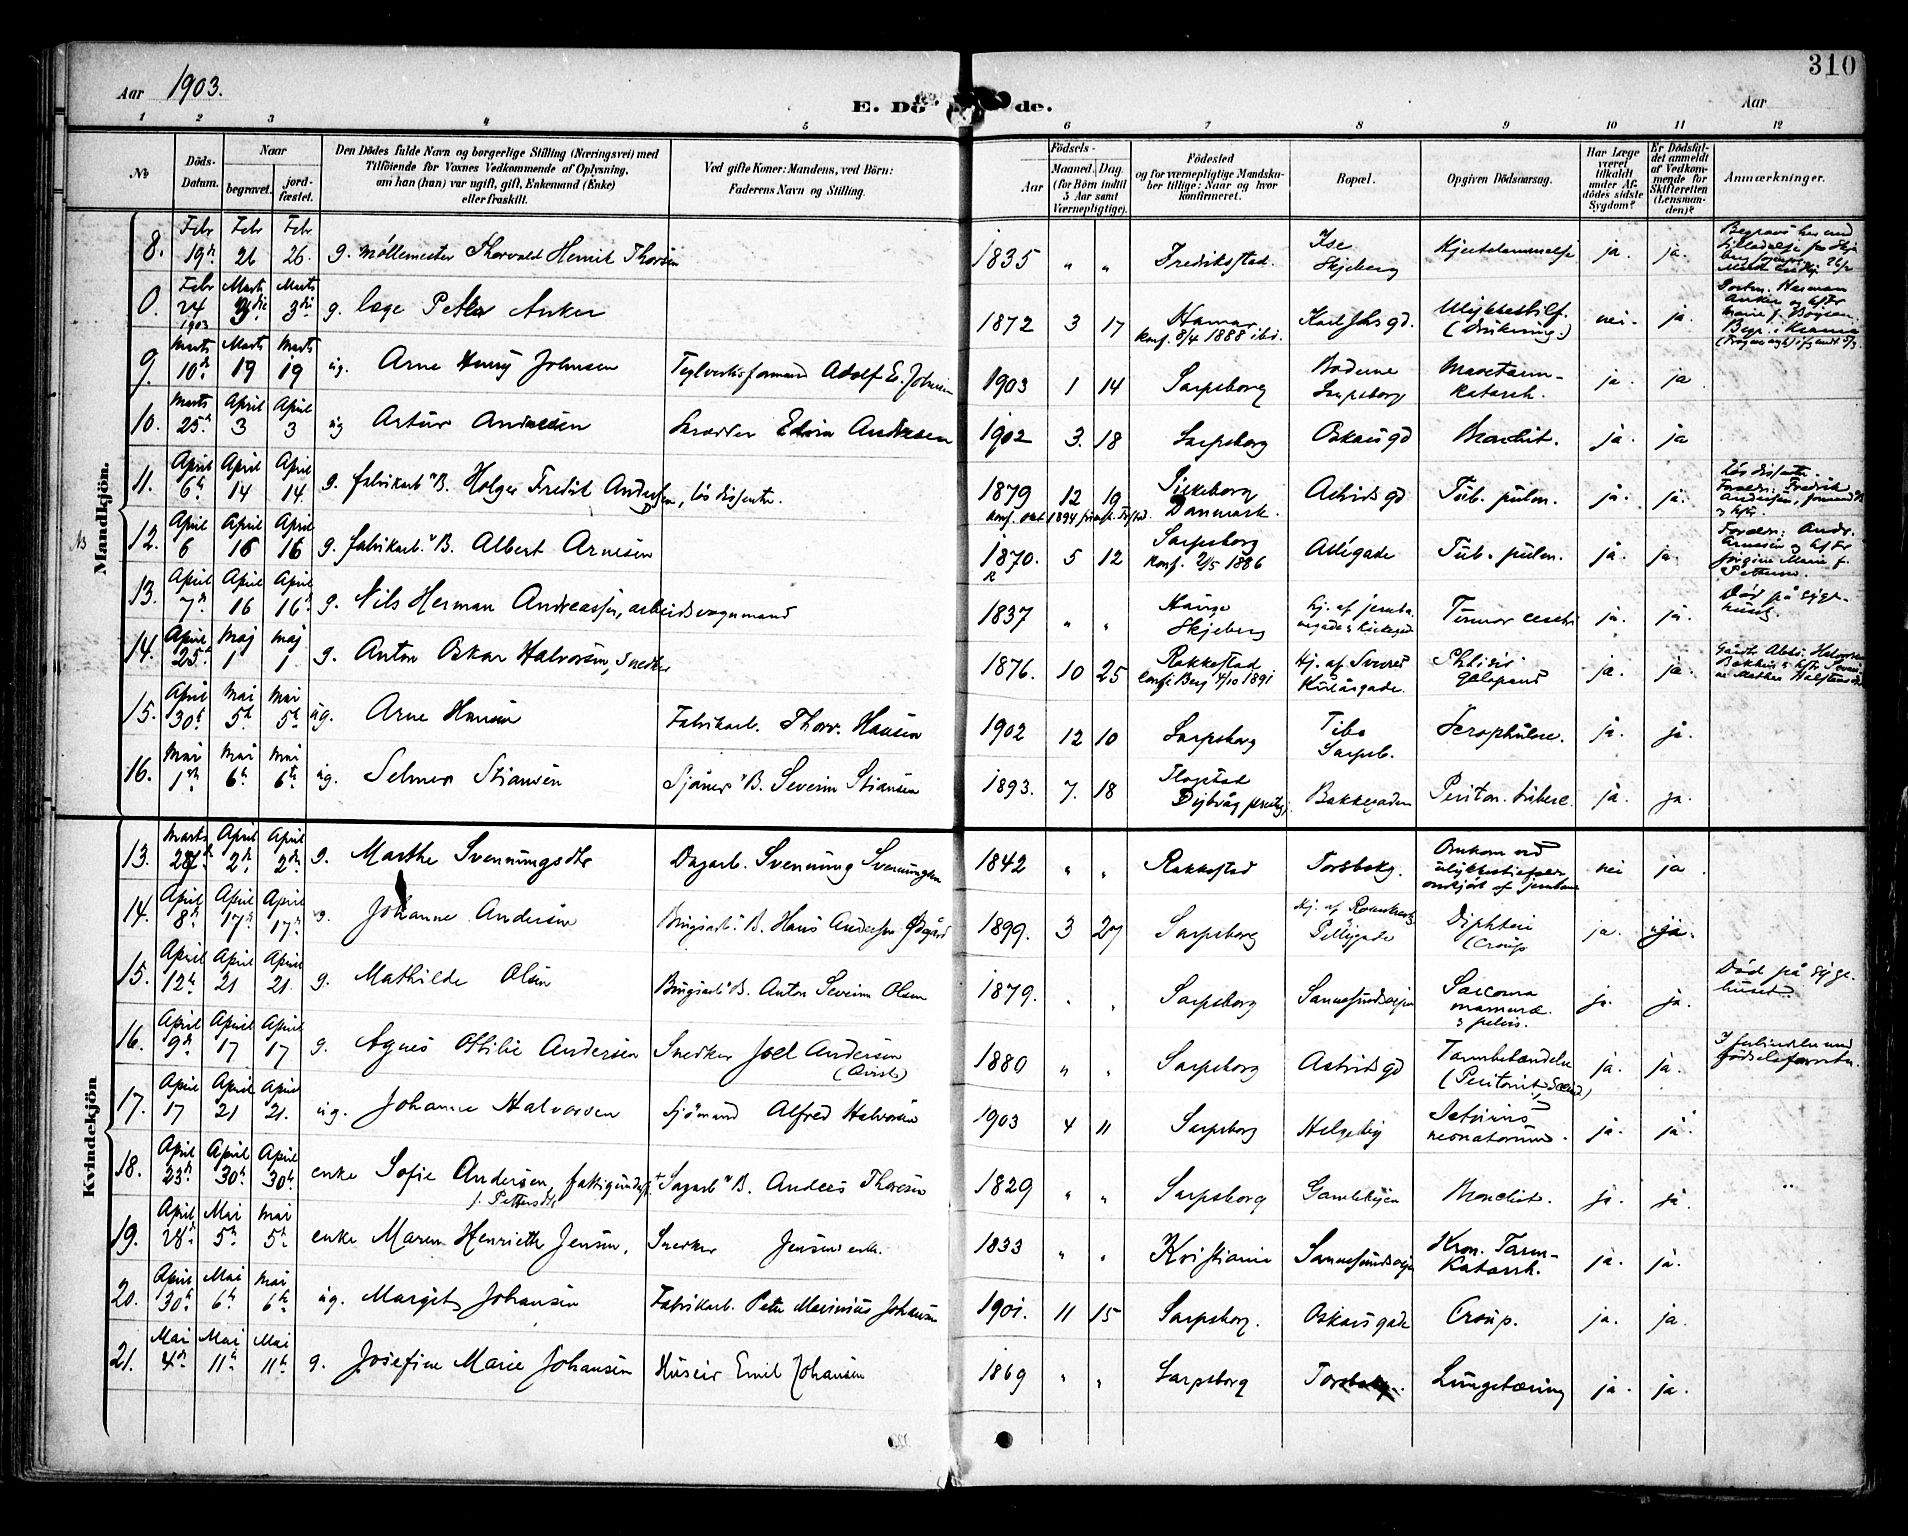 310
Aar 1903.
E. Dö de.
Aar
1 2 3 4 5 6 7 8 9 10 11 12
No
Döds-Datum.
Naar
begravet.
jord-fæstet.
Den Dödes fulde Navn og borgerlige Stilling (Næringsvei) med
Tilföiende for Voxnes Vedkommende af Oplysning,
om han (hun) var ugift, gift, Enkemand (Enke)
eller fraskilt.
Ved gifte Koner: Mandens, ved Börn:
Faderens Navn og Stilling.
Födsels-
Aar
Maaned. Dag.
(for Börn indtil
5 Aar samt
Værnepligtige).
Födested
og for værnepligtige Mandsku-
ber tillige: Naar og hvor
konfirmeret.
Bopæl.
Opgiven Dödsaarsag.
Har Læge
været
tilkaldt
under Af-
dödes sidste
Sygdom?
Er Dödsfal-
det anmeldt
af Vedkom-
mende for
Skifteretten
(Lensman-
den)?
Anmærkninger.
Mandkjön.
8. Febr 19de Febr 26 Febr 26. g. Møllemester Thorvald Henrik Thorsen 1835 " " Fredriksstad. Ise Skjeberg Hjertelammelse ja. ja.
0. Febr 24 1903 Marts 3die Marts 3die g. læge Peter Anker 1872 3 17 Hamar konf. 8/4 1888 ibid. Karl Johs gd. Ulykkestilf. (drukning.) nei. ja.
9. Marts 10de Marts 19 Marts 19 ug. Arne Henry Johnsen Teglverksformand Adolf E. Johnsen 1903 1 14 Sarpsborg Boderne Sarpsborg Mavetarm-katarrh. ja. ja
10. Marts 25 April 3 April 3 ug Artur Andresen Skrædder Edvin Andresen 1902 3. 18 Sarpsborg Oskarsgd Bronchit. ja. ja
11. April 6te April 14 April 14. g. fabrikarb. B. Holger Fredrik Andersen, løs dissenter. 1879 12 19 Silkeborg Danmark. Astrids gd Tub. pulm. ja. ja.
12. April 6 April 16 April 16 g. fabrikarb. B. Albert Arnesen 1870. 5 12 Sarpsborg konf. 2/5 1886 Allégade Tub. pulm. ja. ja.
13. April 7de April 16 April 16de g. Nils Herman Andreassen, arbeidsvognmand 1837 " " Hauge Skjeberg Tumor cerebri ja. ja. Død på syge-huset.
14. April 25 Maj 1 Maj 1. g. Anton Oskar Halvorsen, snedker 1876. 10 25 Rakkestad konf. i Berg 4/10 1891 Hj. af Sverres Kirkegade. Phtisis galopans ja. ja.
15. April 30te Mai 5te Mai 5te ug. Arne Hansen Fabrikarb. Thorv. Hansen 1902 12 10 Sarpsborg Tibo Sarpsb. Scrophulose. ja. ja.
16. Mai 1ste Mai 6te Mai 6te ug. Selmer Stiansen Sjöm. B. Severin Stiansen 1893. 7. 18 Flostad Dybvåg præstg. Bakkegaden Periton. tuberc. ja. ja.
Kvindekjön
13. Marts 28 April 2de April 2de g. Marthe Svenningsdtr Dagarb. Svenning Svenningsen 1842 " " Rakkestad Torsbekg. Omkom ved ulykkestilfælde overkjørt af jernbane nei ja
14. April 8de April 17de April 17de ug. Johanne Andersen Brugsarb. B. Hans Andersen Ødegård 1899. 3 27 Sarpsborg Hj. af Rosenkrantz Pellygade Diphteri (Croup ja. ja.
15. April 12te April 21 April 21. g. Mathilde Olsen Brugsarb. B. Anton Severin Olsen 1879. " " Sarpsborg Sannesundsveien Sarcoma mammæ & pelvis. ja. ja. Død på syge-huset.
16. April 9de April 17 April 17 g. Agnes Otilie Andersen Snedker Joel Andersen (Qvist) 1880 " " Sarpsborg Astridsgd Tarmbetændelse (Peritonit) ja. ja. I forbindelse med fødselsfærden
17. April 17 April 21 April 21. ug. Johanne Halvorsen Sjömand Alfred Halvorsen 1903 4 11 Sarpsborg Helgeby Icterus neonatorum. ja. ja.
18. April 23de April 30te April 30te enke Sofie Andersen, fattigunderst. f. Pettersdtr Sagarb. B. Anders Thoresen 1829 " " Sarpsborg Gamlebyen Bronchit. ja. ja.
19. April 28de Mai 5te Mai 5te enke Maren Henriette Jensen, Snedker Jensens enke. 1833 " " Kristiania Sannesundsveien Kron. Tarm-Katarrh. ja. ja.
20. April 30te Mai 6te Mai 6te ug. Margit Johansen Fabrikarb. Peter Marinius Johansen 1901. 11 15 Sarpsborg. Oskarsgade Croup. ja. ja.
21. Mai 4de Mai 11te Mai 11te g. Josefine Marie Johansen Huseier Emil Johansen 1869 " " Sarpsborg Torsbekg. Lungetæring ja. ja.